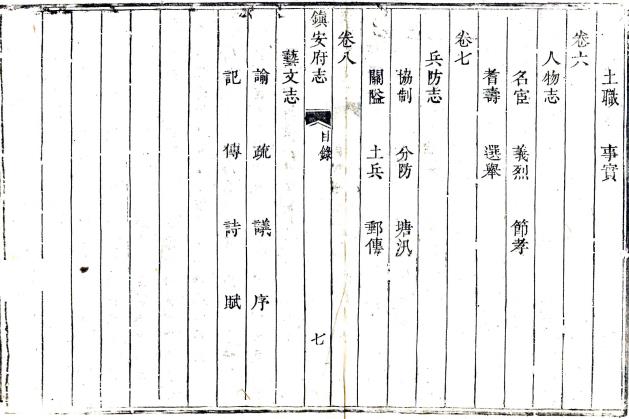 土職 事實
卷六
人物志
名宦 義烈 節孝
耆壽 選舉
卷七
兵防志
協制 分防 塘汛
關隘 土兵 郵傳
卷八
鎮安府志 目錄 七
藝文志
諭 疏 議 序
記 傳 詩 賦